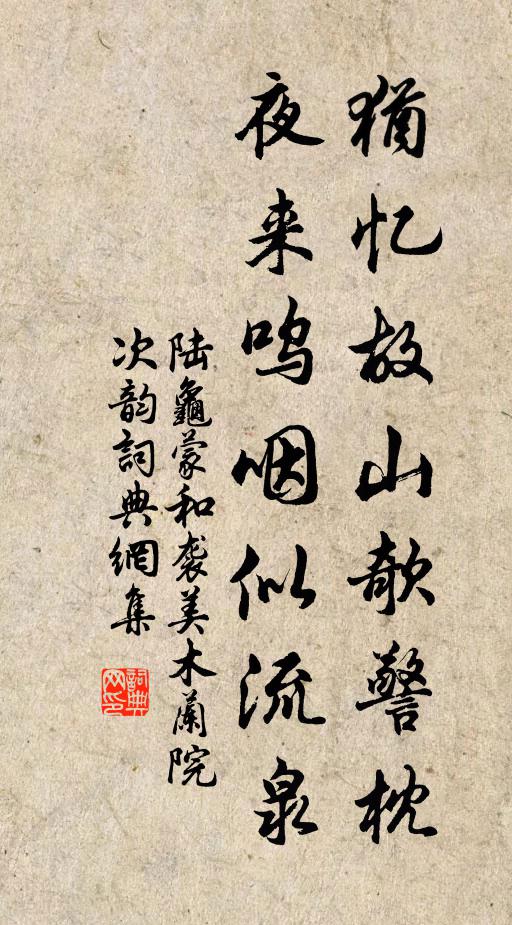 猶忆故山欹警枕
夜来呜咽似流泉
陆龜蒙和袭美木蘭院
次韵詞典網集
詞典网印